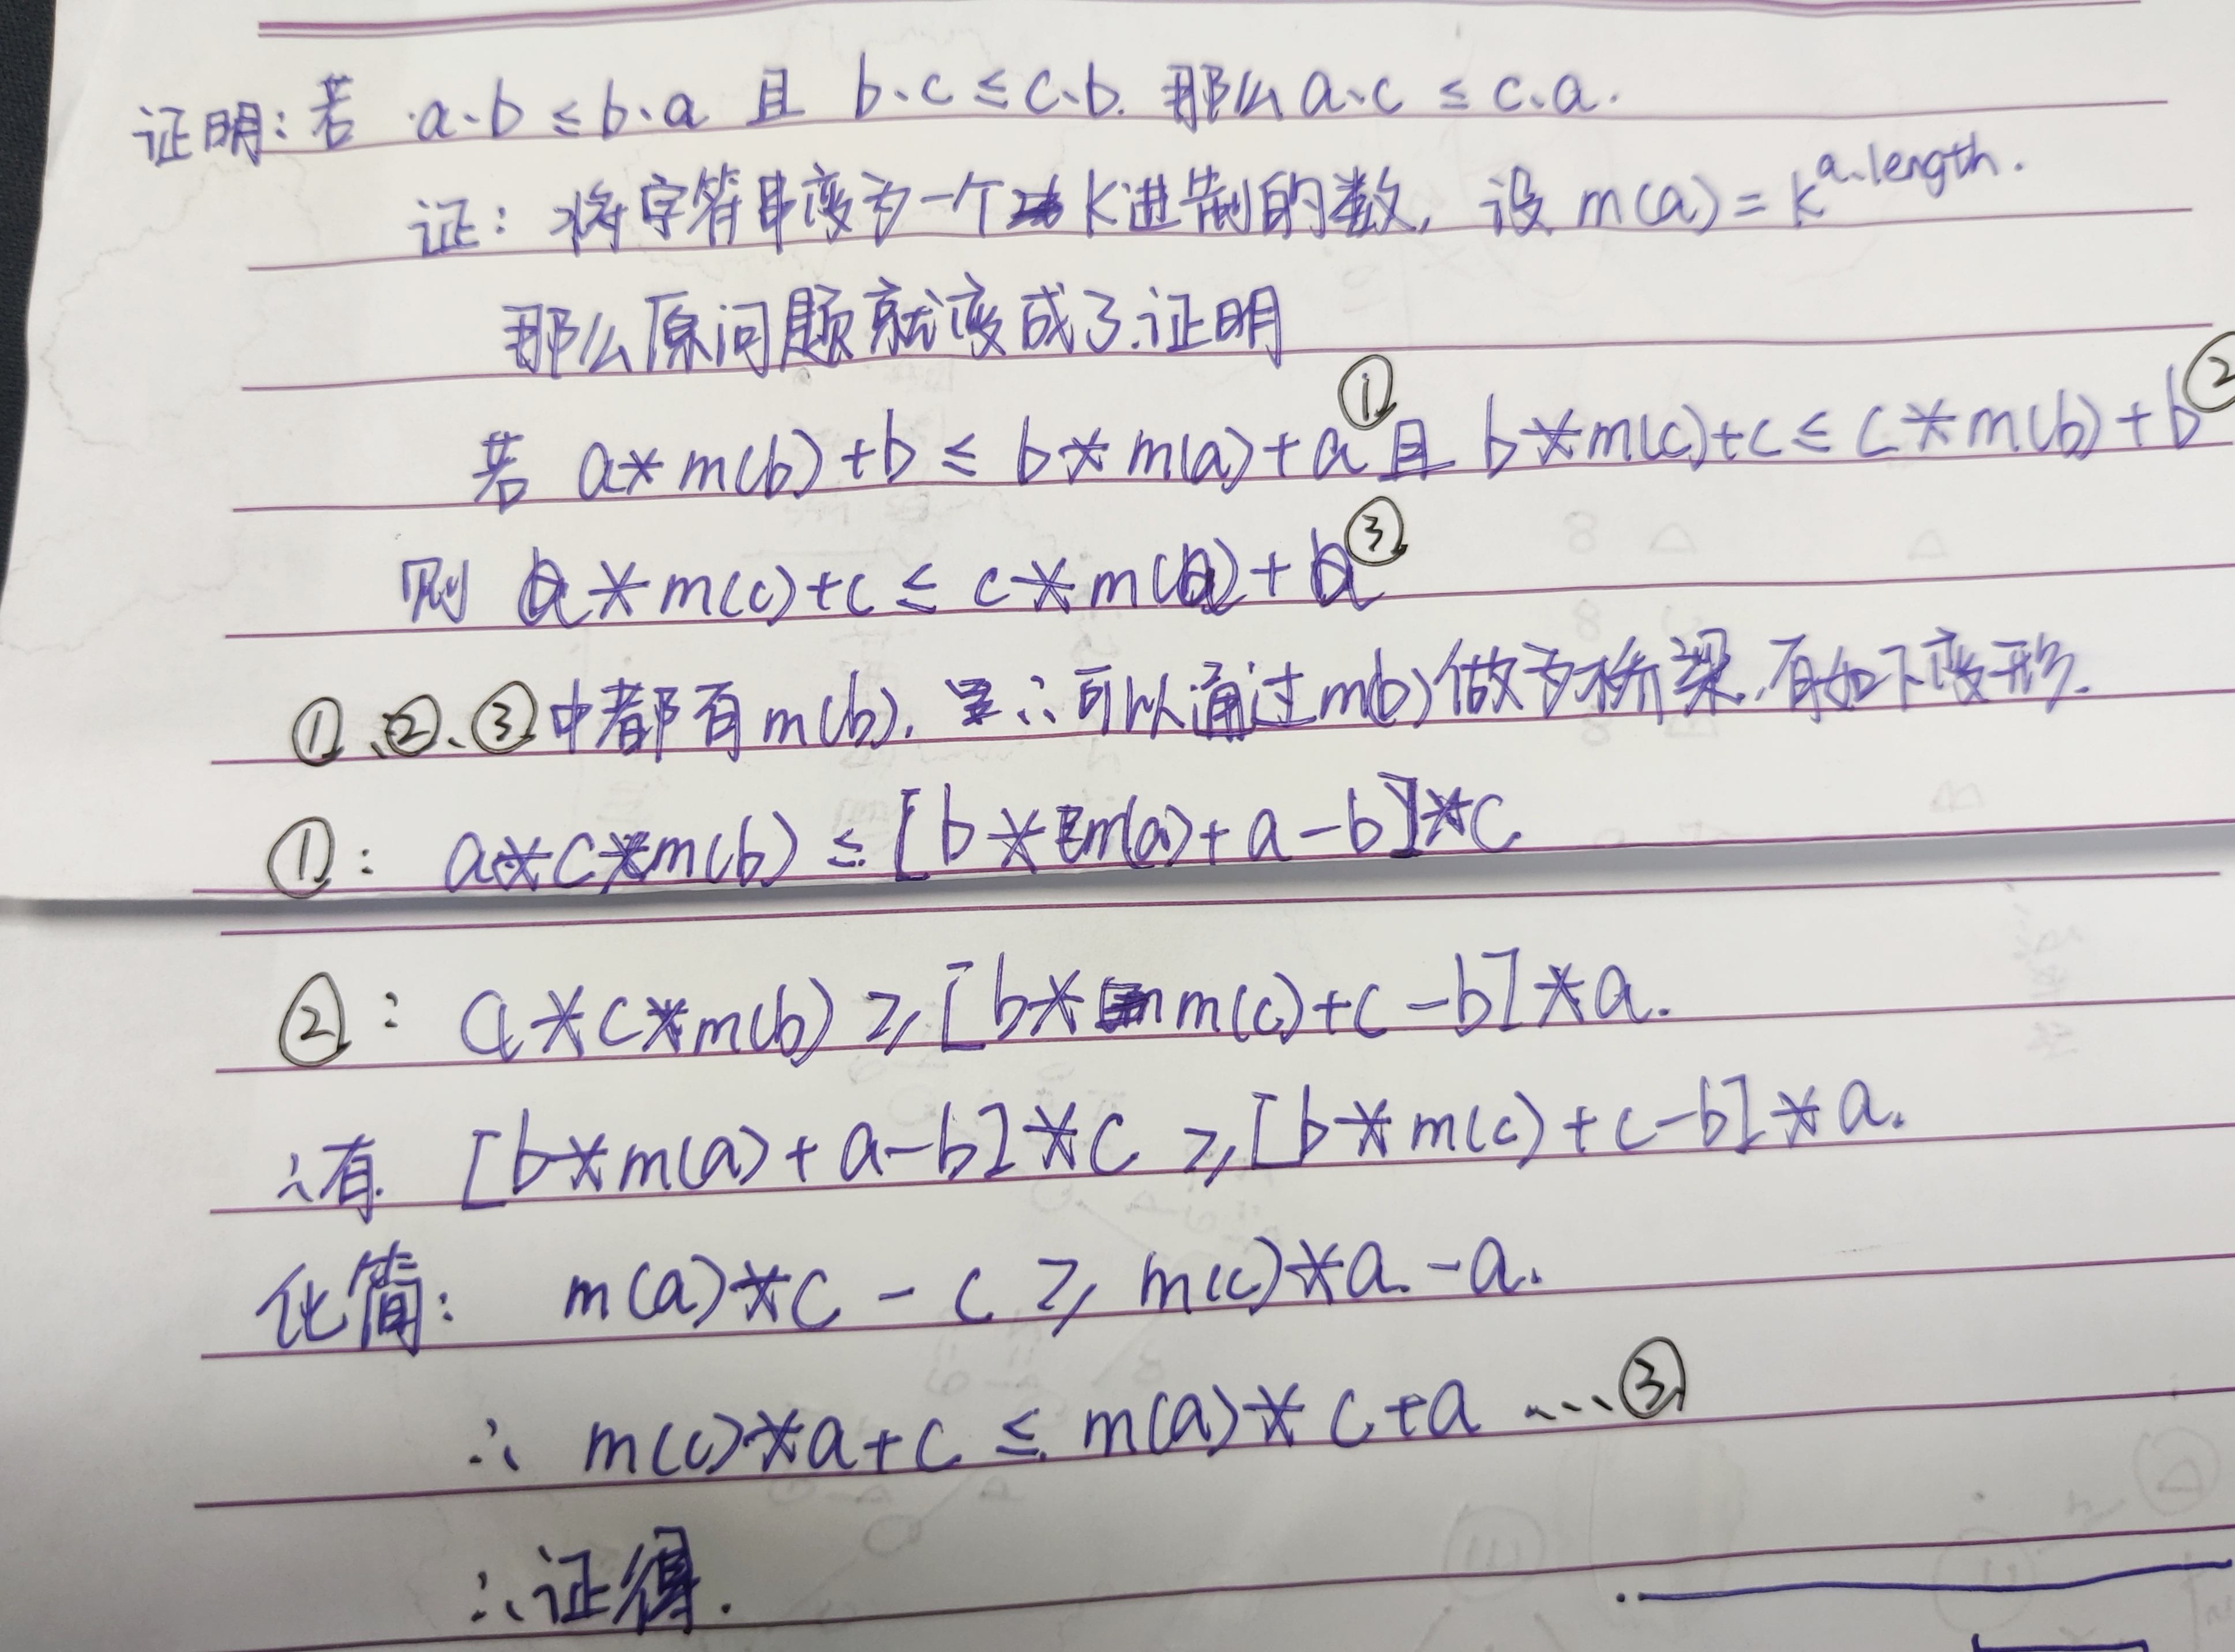 证明:若 a.b ≤ b.a 且 b.c ≤ c.b. 那么 a.c ≤ c.a.
证:将字符串变为一个K进制的数,设 m(a) = K^a.length.
那么原问题就变成了.证明
若 a*m(b)+b ≤ b*m(a)+a ① 且 b*m(c)+c ≤ c*m(b)+b ②
则 a*m(c)+c ≤ c*m(a)+a ③
①、②、③中都有m(b). ∴可以通过m(b)做为桥梁,有如下变形.
①: a*c*m(b) ≤ [b*m(a)+a-b]*c
②: a*c*m(b) ≥ [b*m(c)+c-b]*a.
∴有 [b*m(a)+a-b]*c ≥ [b*m(c)+c-b]*a.
化简: m(a)*c - c ≥ m(c)*a - a.
∴ m(c)*a+c ≤ m(a)*c+a ...③
∴证得.